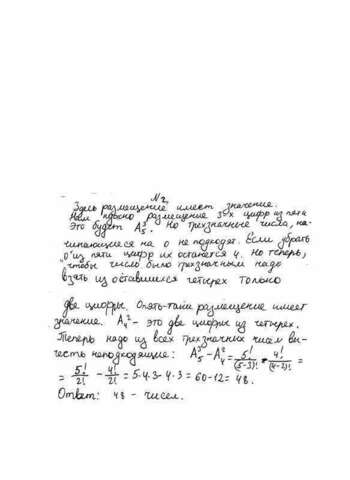 №2.
Здесь размещение имеет значение.
Нам нужно размещение 3-х цифр из пяти
Это будет A₅³. Но трехзначные числа, на-
чинающиеся на 0 не подходят. Если убрать
"0" из пяти цифр их останется 4. Но теперь,
чтобы число было трехзначным надо
взять из оставшихся четырех только
две цифры. Опять-таки размещение имеет
значение. A₄² - это две цифры из четырех.
Теперь надо из всех трехзначных чисел вы-
честь неподходящие: A₅³ - A₄² = 5!/(5-3)! - 4!/(4-2)! =
= 5!/2! - 4!/2! = 5·4·3 - 4·3 = 60-12 = 48.
Ответ: 48 - чисел.